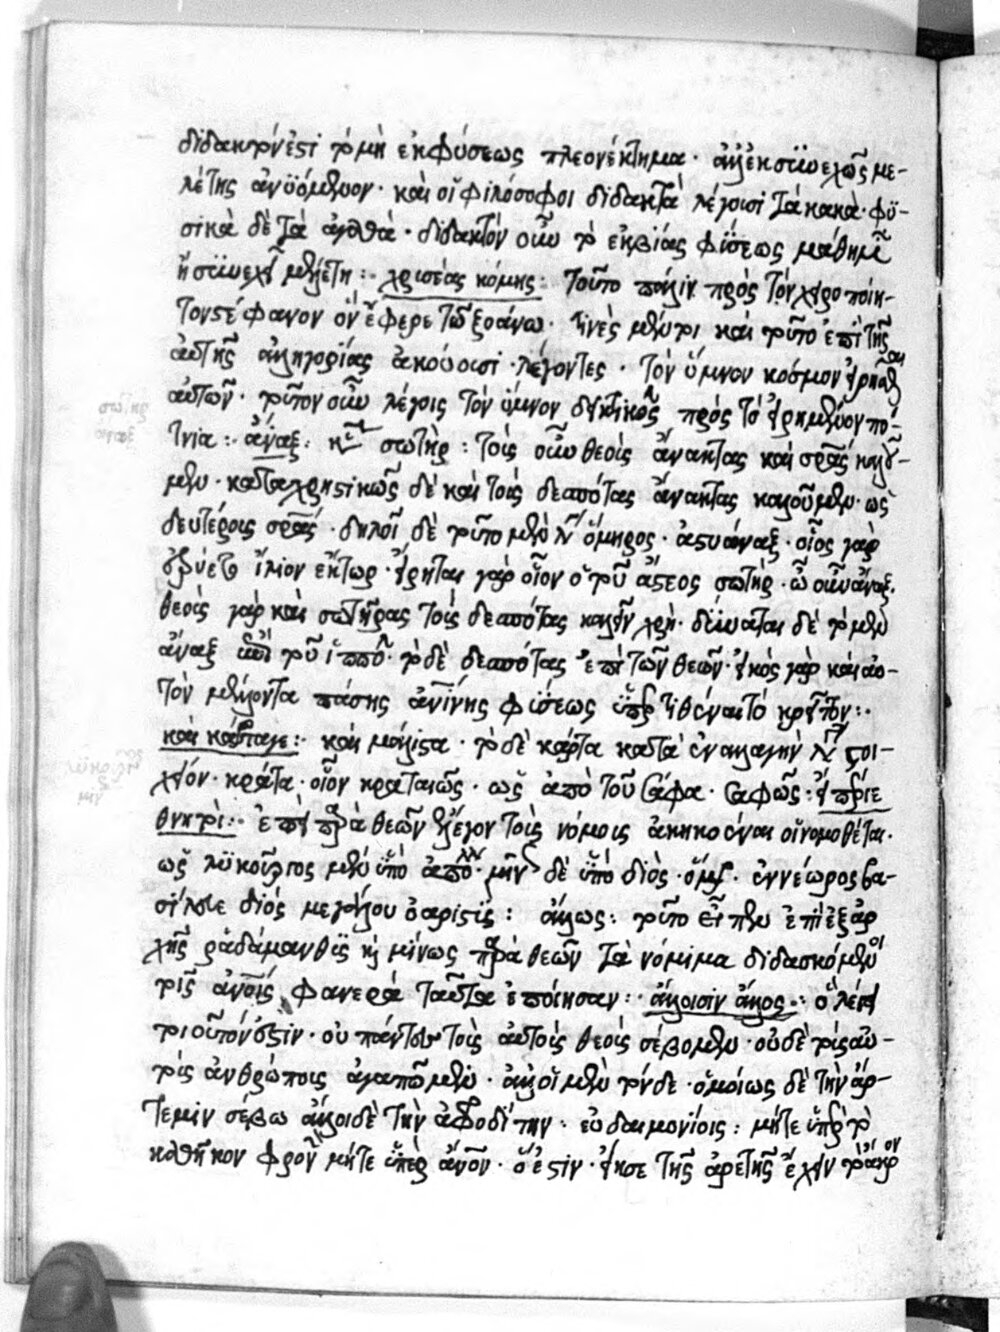 διδακτόν ἐστι τὸ μὴ ἐκ φύσεως πλεονέκτημα· ἀλλ' ἐκ συνεχῶς με-
λέτης ἀνυόμενον· καὶ οἱ φιλόσοφοι διδακτὰ λέγουσι τὰ κακὰ· φυ-
σικὰ δὲ τὰ ἀγαθά· διδακτὸν οὖν τὸ ἐκ βίας φύσεως μάθημα
ἢ συνεχεῖ μελέτη :· χρυσέας κόμης : τοῦτο πάλιν πρὸς τὸν χειροποίη-
τον στέφανον ὃν ἔφερε τῷ ξοάνω· τινὲς μέντοι καὶ τοῦτο ἐπὶ τῆς
αὐτῆς ἀλληγορίας ἀκούουσι· λέγοντες· τὸν ὕμνον κόσμον εἰρῆσθαι
αὐτῶν· τοῦτον οὖν λέγοις τὸν ὕμνον δεκτικὸς πρὸς τὸ εἰρημένον πό-
τνια :· ἄναξ : σωτὴρ : τοὺς οὖν θεοὺς ἄνακτας καὶ σρας καλοῦ-
μεν· καταχρηστικῶς δὲ καὶ τοὺς δεσπότας ἄνακτας καλοῦμεν· ὡς
δευτέρους σρας· δηλοῖ δὲ τοῦτο μὲν ὅμηρος· ἀστυάναξ· οἶος γὰρ
ἐρύετο ἴλιον ἕκτωρ· εἴρηται γὰρ οἷον ὁ τοῦ ἄστεος σωτὴρ· ὦ οὖν ἄναξ·
θεοὺς γὰρ καὶ σωτῆρας τοὺς δεσπότας καλεῖν χρή· δύναται δὲ τὸ μὲν
ἄναξ ἐπὶ τοῦ ἱππο· τὸ δὲ δεσπότας ἐπὶ τῶν θεῶν· εἰκὸς γὰρ καὶ αὐ-
τὸν μέλλοντα πάσης ἀνίνης φύσεως ὑπερτιθέναι τὸ κρεῖττον :·
καὶ κάρταγε :· καὶ μάλιστα· τὸ δὲ κάρτα κατὰ ἐναλλαγὴν στοι-
χείου· κράτα· οἷον κραταιῶς· ὡς ἀπὸ τοῦ σάφα· σαφῶς : εἴπερίε
θνητοί :· ἐπεὶ παρὰ θεῶν ἔλεγον τοὺς νόμους ἀκηκοέναι οἱ νομοθέται·
ὡς λυκοῦργος μὲν ὑπὸ ἀπόλλ· μην δὲ ὑπὸ διός· ὅμρ· ἐννέωρος βα-
σίλευε διὸς μεγάλου ὀαριστής : ἄλλως : τοῦτο εἶπεν ἐπεὶ ἐξ ἀρ
χῆς ῥαδάμανθυς κ(αὶ) μίνως παρὰ θεῶν τὰ νόμιμα διδασκόμενοι
τοῖς ἀνοις, φανερὰ ταῦτα ἐποίησαν :· ἄλλοισιν ἄλλος :· ὃ λέγει
τοιοῦτόν ἐστιν· οὐ πάντες τοὺς αὐτοὺς θεοὺς σέβομεν· οὐδὲ τοὺς αὐ-
τοὺς ἀνθρώπους ἀγαπῶμεν· ἀλλ' οἱ μὲν τόνδε· ὁμοίως δὲ τὴν ἄρ-
τεμιν σέβω ἄλλοι δὲ τὴν ἀφροδίτην· εὐδαιμονίοις : μήτε ὑπὲρ τὸ
καθῆκον φρονεῖν μήτε ὑπὲρ ἄνον· ὅ ἐστιν· εἵκησε τῆς ἀρετῆς ἔχειν τὸ ἄκρον